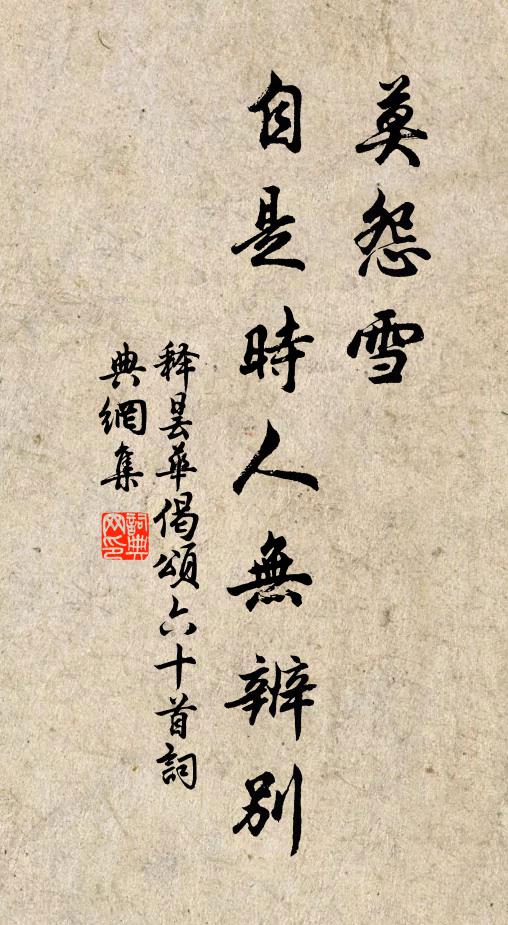 莫怨雪
自是時人無辨別
釋曇華偈頌六十首詞
典網集
詞典
网印